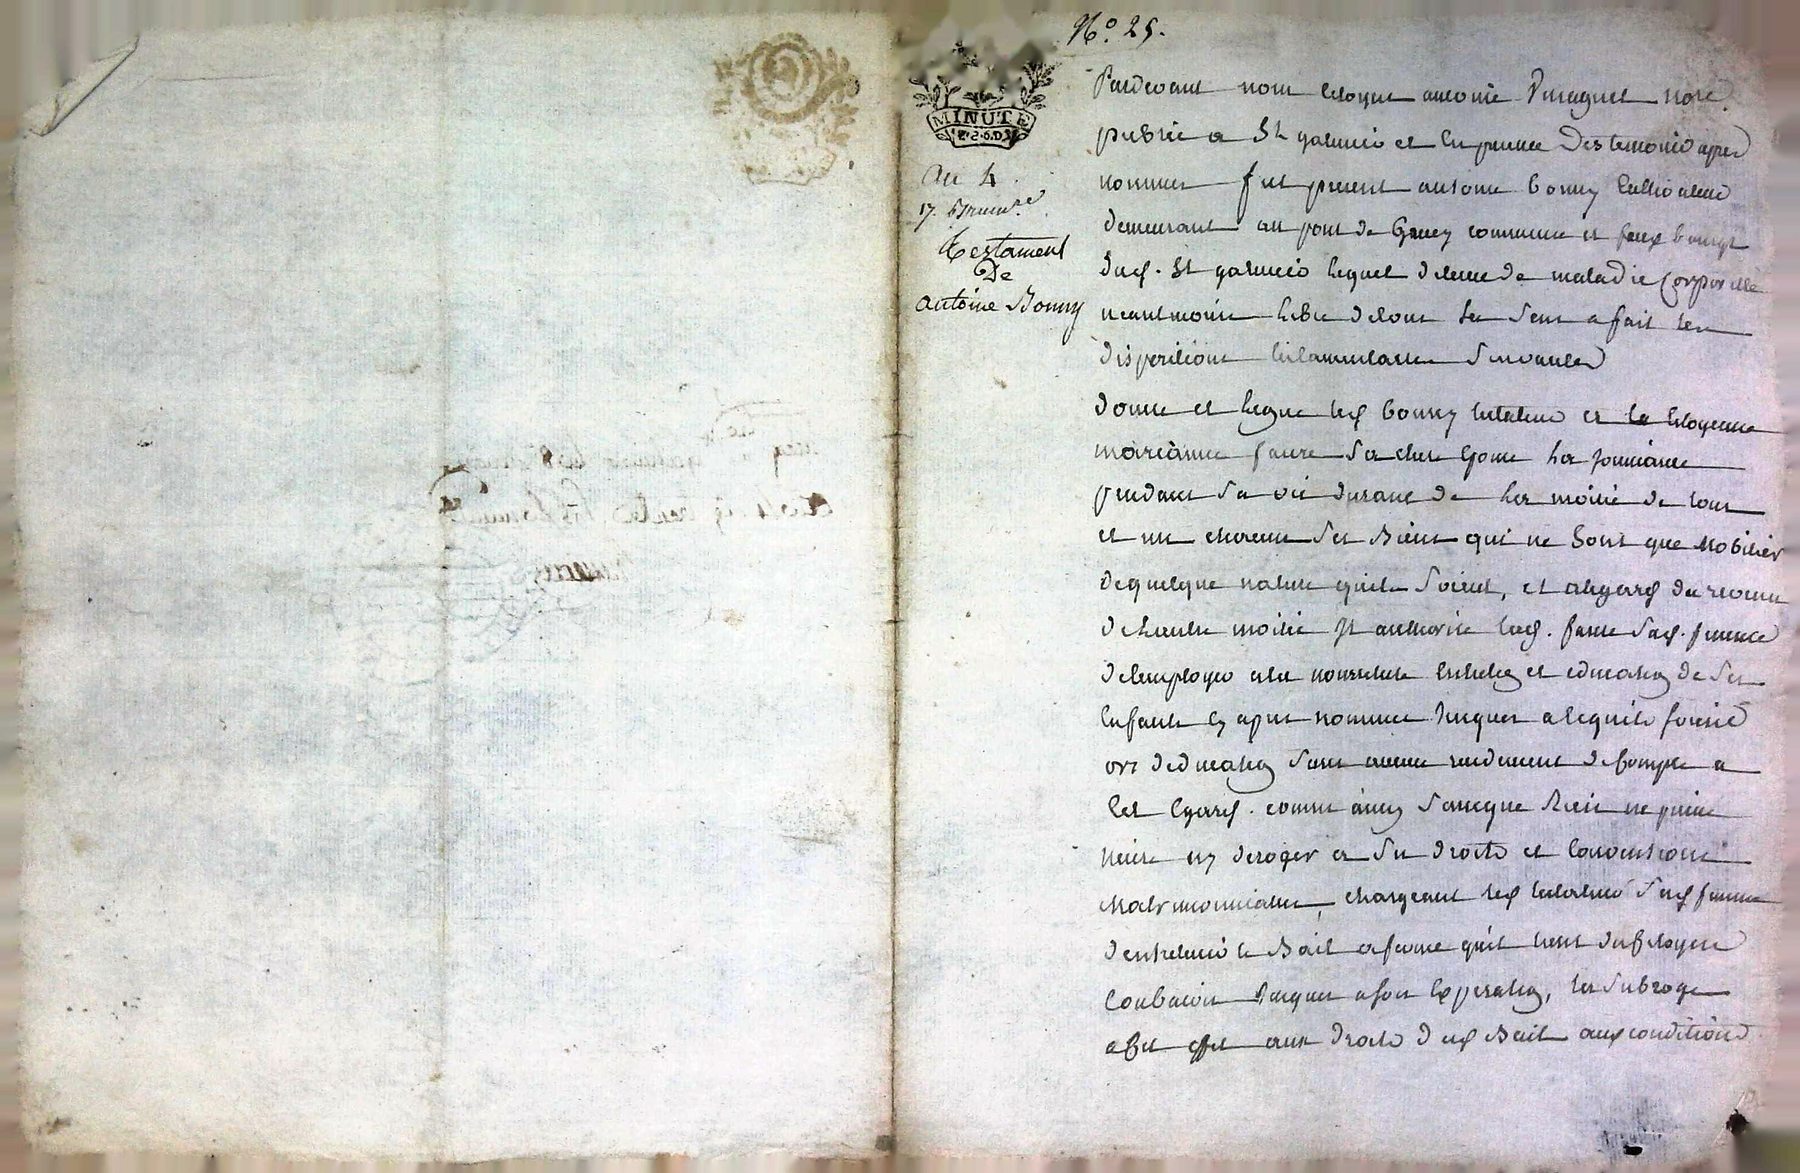 N.° 25.
MINUTE
An 4
17. brumre
Testament
De
Antoine Bonny
Pardevant nous citoyen antoine notre
public a St galmier et en presence des temoins apres
nommes fut present antoine bonny cultivateur
demeurant au pont de commune et faux bourgt
dud. St galmier lequel detenu de maladie corporelle
neantmoins libre de tous ses sens a fait ses
dispositions testamentaires suivantes
donne et legue led bonny testateur a la citoyenne
marianne faure sa chere epouse la jouissance
pendant sa vie durant de la moitié de tous
et un chacun ses Biens qui ne sont que Mobilier
de quelque nature quils soient, et a legard du revenu
de lautre moitié Il authorise lad. faure sad. femme
de lemployer a la nourriture entretien et education de ses
enfants cy apres nommes jusques a ce quils soient
ors deducation sans aucun rendement de Compte a
cet egard. comme aussy sans que Rien ne puisse
nuire ny deroger a ses droits et Conventions
Matrimonialles, chargeant led testateur sad femme
dentretenir le Bail a ferme quil tient du Citoyen
jusques a son expiration, la subroge
a Cet effet aux droits dud Bail aux conditions